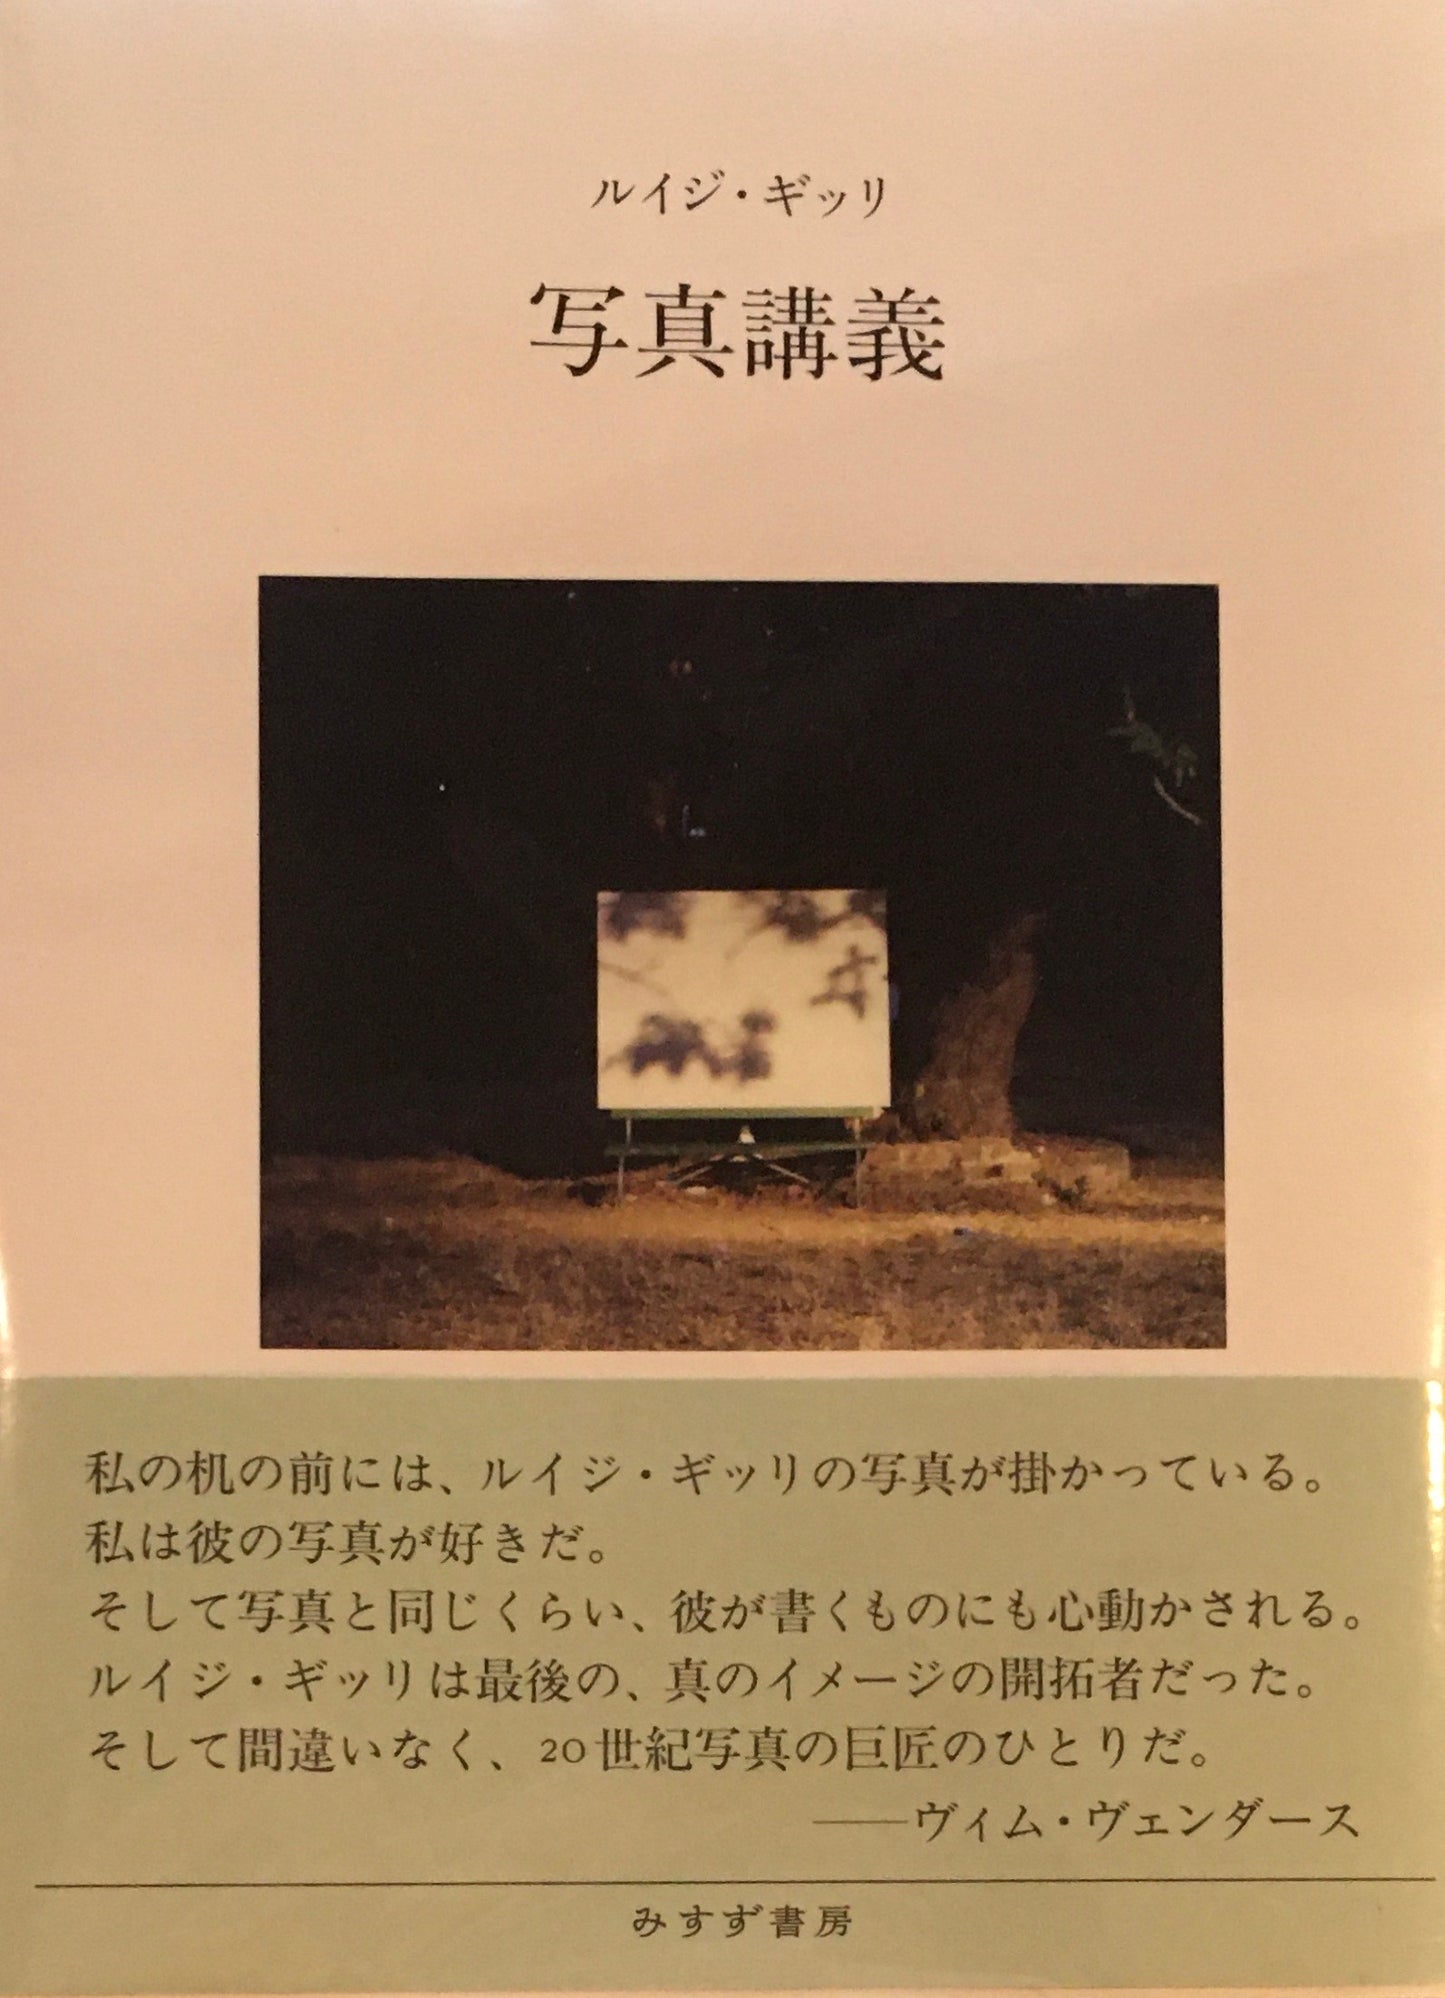 ルイジ・ギッリ
写真講義
私の机の前には、ルイジ・ギッリの写真が掛かっている。
私は彼の写真が好きだ。
そして写真と同じくらい、彼が書くものにも心動かされる。
ルイジ・ギッリは最後の、真のイメージの開拓者だった。
そして間違いなく、20世紀写真の巨匠のひとりだ。
——ヴィム・ヴェンダース
みすず書房